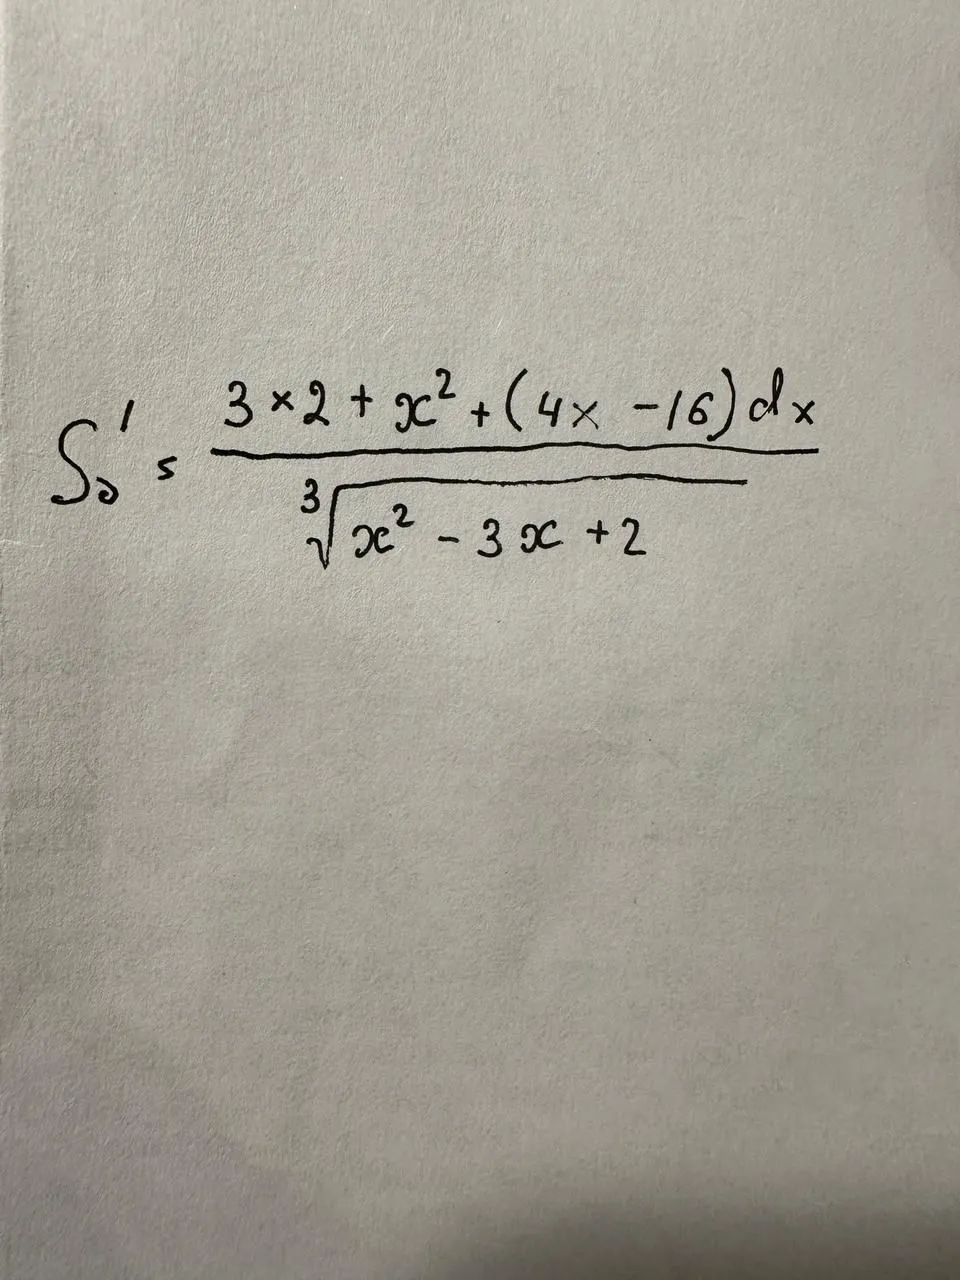 ∫₀¹ = (3 × 2 + x² + (4x - 16) dx) / ∛(x² - 3x + 2)